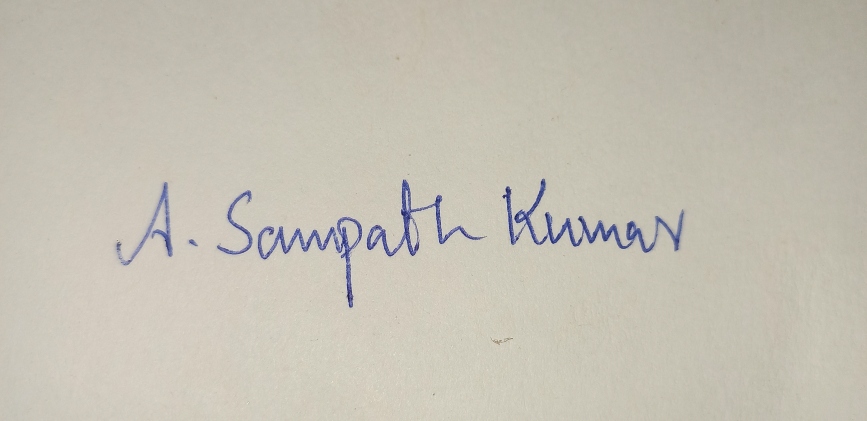 A. Sampath Kumar